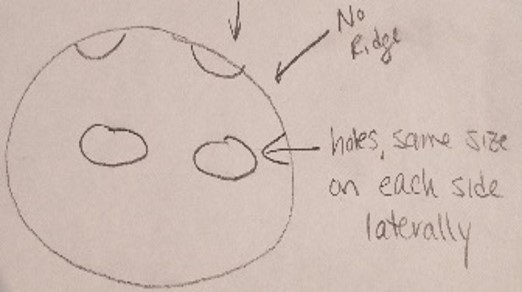 No
Ridge
holes, same size
on each side
laterally